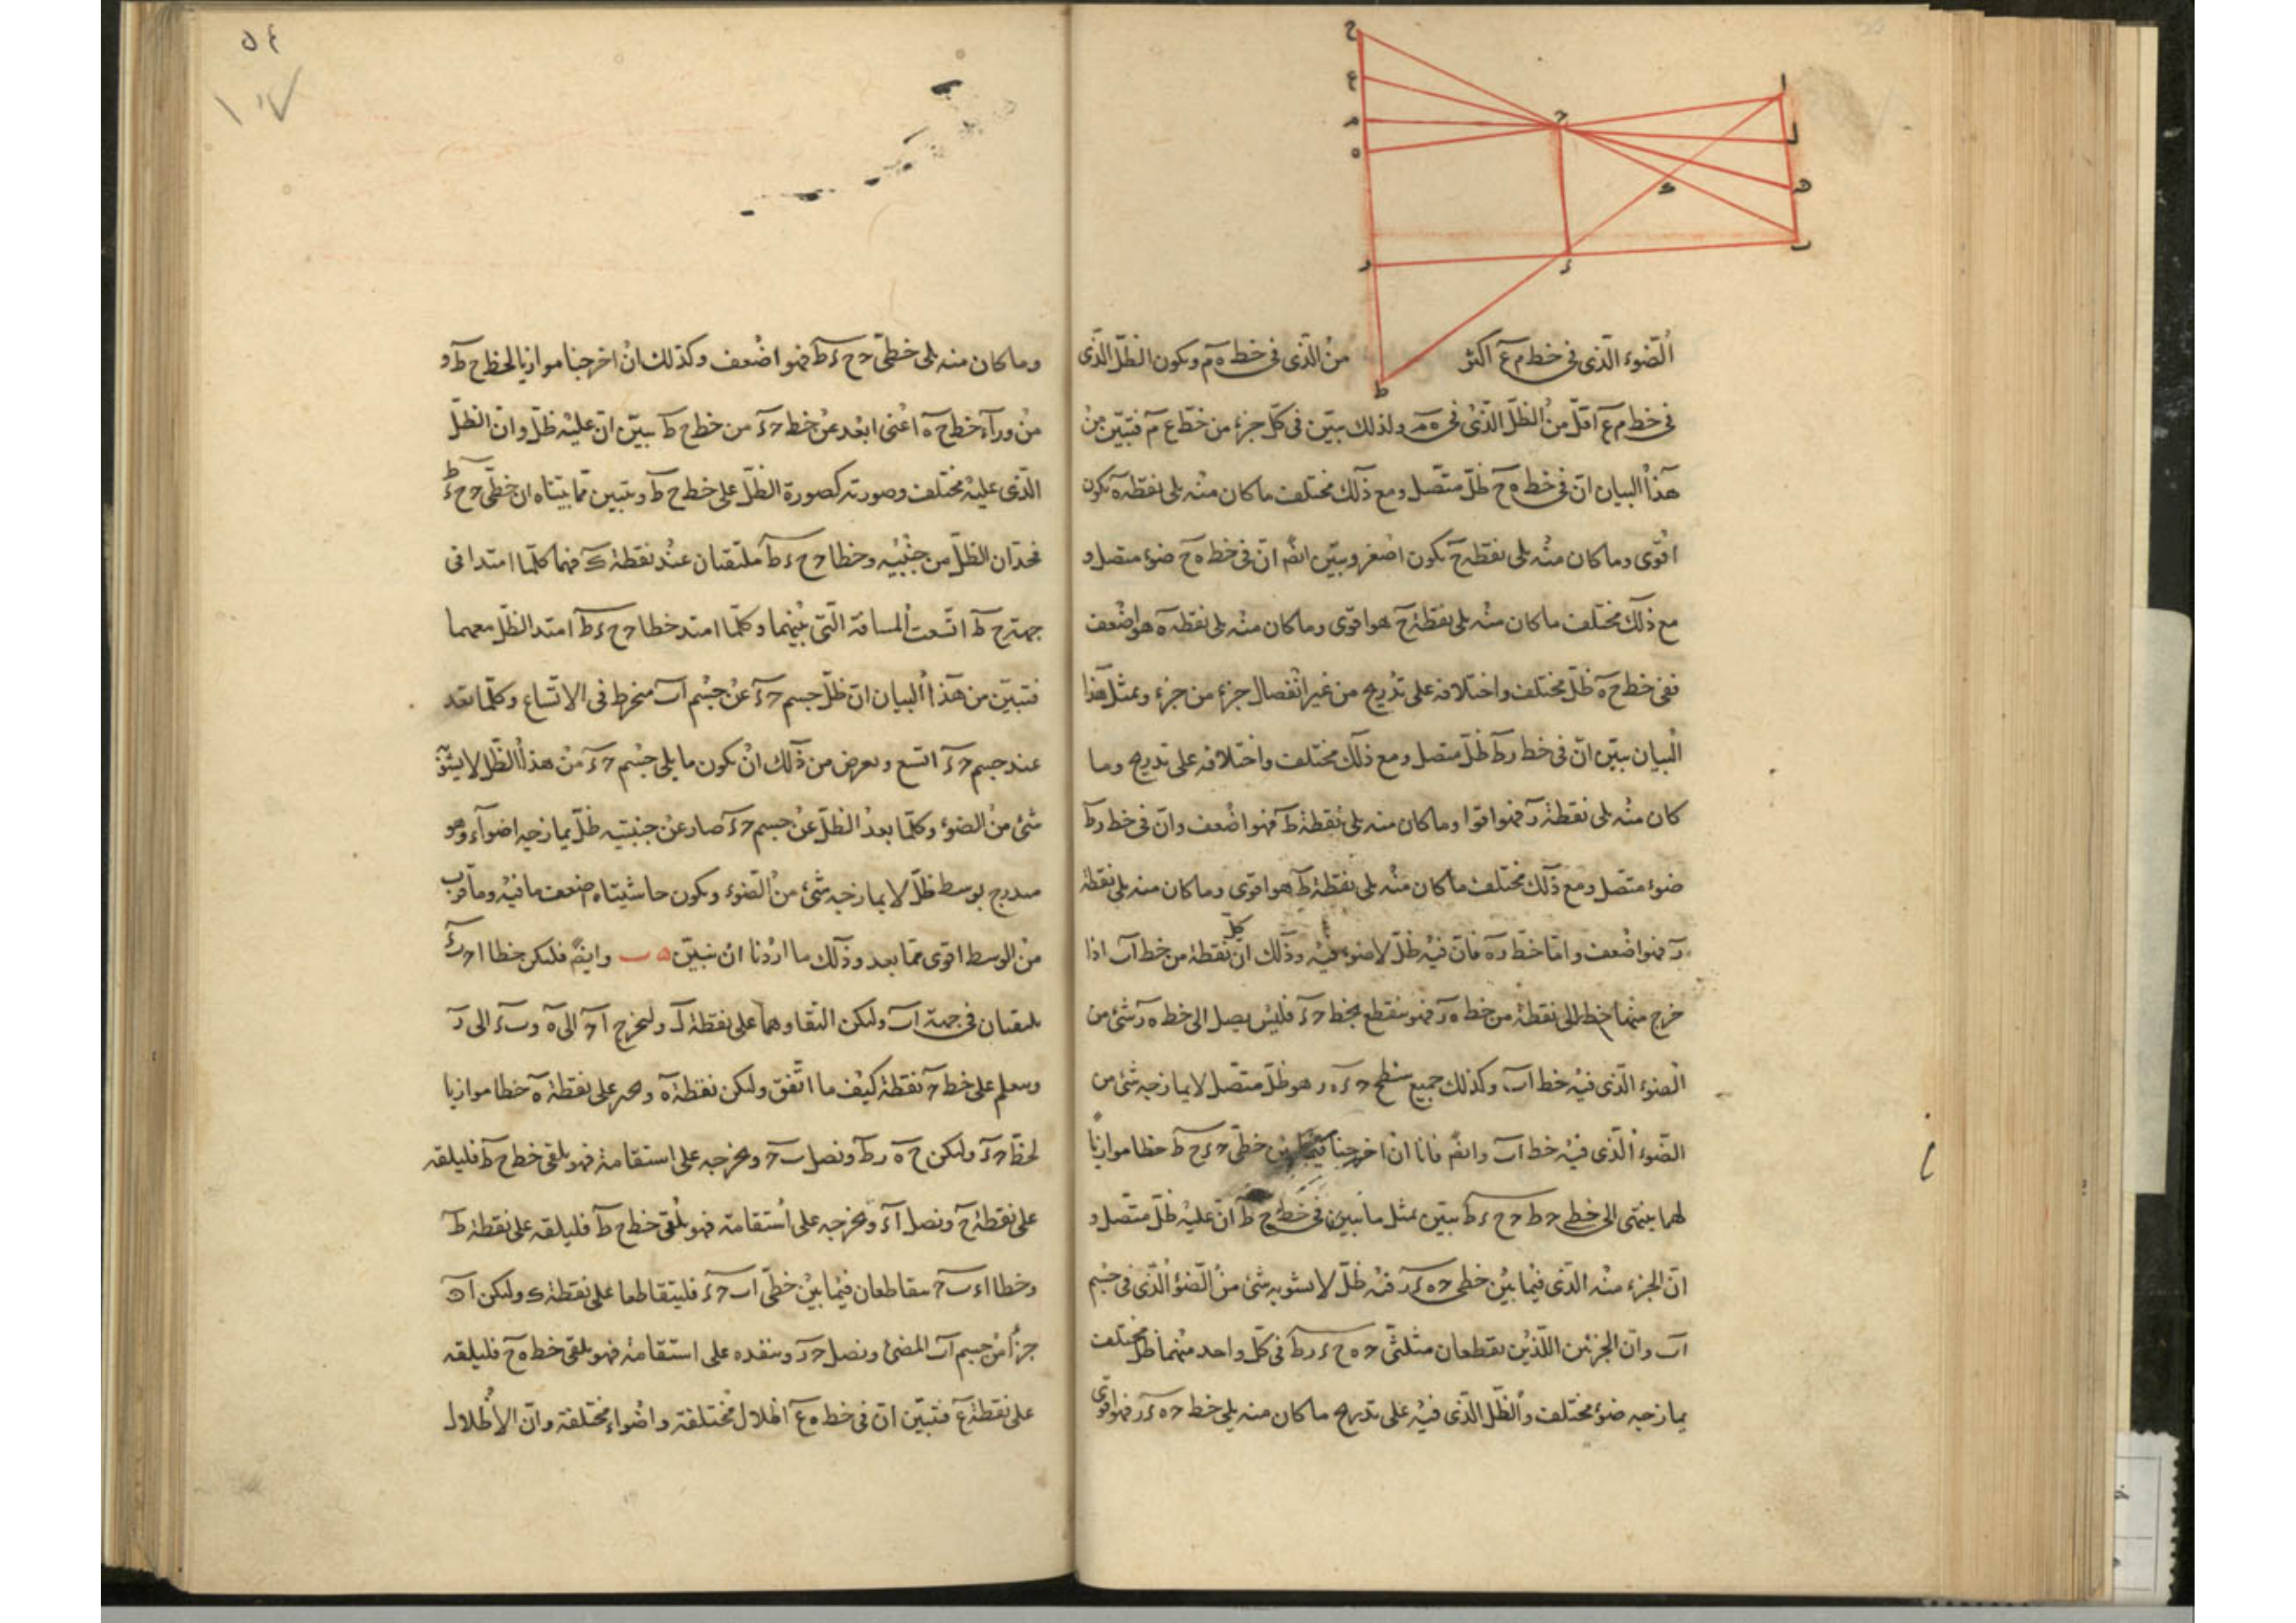 ح
ع
م
ه
ر
ح
ء
ط
ا
ل
ه
ب
ك
الضوء الذى فى خط م ع اكثر من الذى فى خط ه م ويكون الظل الذى
فى خط م ع اقل من الظل الذى فى ه م ولذلك يتبين فى كل جزء من خط ع م فتبين من
هذا البيان ان فى خط ه ح ظل متصل ومع ذلك مختلف ما كان منه يلى نقطة ه يكون
اقوى وما كان منه يلى نقطة ح يكون اصغر وبين ايضا ان فى خط ه ح ضوء متصل و
مع ذلك مختلف ما كان منه يلى نقطة ح هو اقوى وما كان منه يلى نقطة ه هو اضعف
ففى خط ح ه ظل مختلف واختلافه على تدريج من غير انفصال جزء من جزء وبمثل هذا
البيان يتبين ان فى خط ر ط ظل متصل ومع ذلك مختلف واختلافه على تدريج وما
كان منه يلى نقطة ر فهو اقوا وما كان منه يلى نقطة ط فهو اضعف وان فى خط ر ط
ضوء متصل ومع ذلك مختلف ما كان منه يلى نقطة ط هو اقوى وما كان منه يلى نقطة
ر فهو اضعف واما خط ر ه فان فيه ظل لا ضوء فيه وذلك ان كل نقطة من خط ا ب اذا
خرج منها خط الى نقطة من خط ه ر فهو ينقطع بخط ح ء فليس يصل الى خط ه ر شئ من
الضوء الذى فيه خط ا ب وكذلك جميع سطح ح ء ه ر هو ظل متصل لا يمازجه شئ من
الضوء الذى فيه خط ا ب وايضا فانا ان اخرجنا فيما بين خطى ح ء ح ط خطا موازيا
لهما ينتهى الى خطى ح ح ء ط يتبين بمثل ما تبين فى خط ح ط ان عليه ظل متصل و
ان الجزء منه الذى فيما بين خطى ح ه ء ر فيه ظل لا يشوبه شئ من الضوء الذى فى جسم
ا ب وان الجزئين اللذين يقطعان مثلثى ح ه ح ء ر ط فى كل واحد منهما ظل مختلف
يمازجه ضوء مختلف والظل الذى فيه على تدريج ما كان منه يلى خط ح ه ء ر فهو اقوى
٥٤
١٠٧
وما كان منه يلى خطى ح ح ء ط فهو اضعف وكذلك ان اخرجنا موازيا لخط ح ط و
من ورآء خط ح ه اعنى ابعد عن خط ح ء من خط ح ط يتبين ان عليه ظل وان الظل
الذى عليه مختلف وصورته كصورة الظل على خط ح ط وتبين مما بيناه ان خطى ح ح ء ط
يحدان الظل من جنبيه وخطا ح ح ء ط ملتقيان عند نقطة ك فهما كلما امتدا فى
جهة ح ط اتسعت المسافة التى بينهما وكلما امتد خطا ح ح ء ط امتد الظل معهما
فتبين من هذا البيان ان ظل جسم ح ء عن جسم ا ب منخرط فى الاتساع وكلما بعد
عند جسم ح ء اتسع ويعرض من ذلك ان يكون ما يلى جسم ح ء من هذا الظل لا يشوبه
شئ من الضوء وكلما بعد الظل عن جسم ح ء صار عن جنبتيه ظل يمازجه اضوآء وهو
متدرج بوسط ظل لا يمازجه شئ من الضوء ويكون حاشيتاه اضعف ما فيه وما قرب
من الوسط اقوى مما بعد وذلك ما اردنا ان نبين ه ب وايضا فليكن خطا ا ح ب ء
يلتقيان فى جهة ا ب وليكن التقاوهما على نقطة ل وليخرج ا ح الى ه و ب ء الى ر
ونعلم على خط ح ه نقطة كيف ما اتفق وليكن نقطة ه ونجز على نقطة ه خطا موازيا
لخط ح ء وليكن ح ه ر ط ونصل ب ح ونخرجه على استقامة فهو يلقى خط ح ط فليلقه
على نقطة ح ونصل ا ء ونخرجه على استقامة فهو يلقى خط ح ط فليلقه على نقطة ط
وخطا ا ء ب ح يتقاطعان فيما بين خطى ا ب ح ء فليتقاطعا على نقطة ك وليكن ا ن
جزأ من جسم ا ب المضئ ونصل ح ن وننفذه على استقامة فهو يلقى خط ه ح فليلقه
على نقطة ع فتبين ان فى خط ه ع اظلال مختلفة واضواء مختلفة وان الاظلال